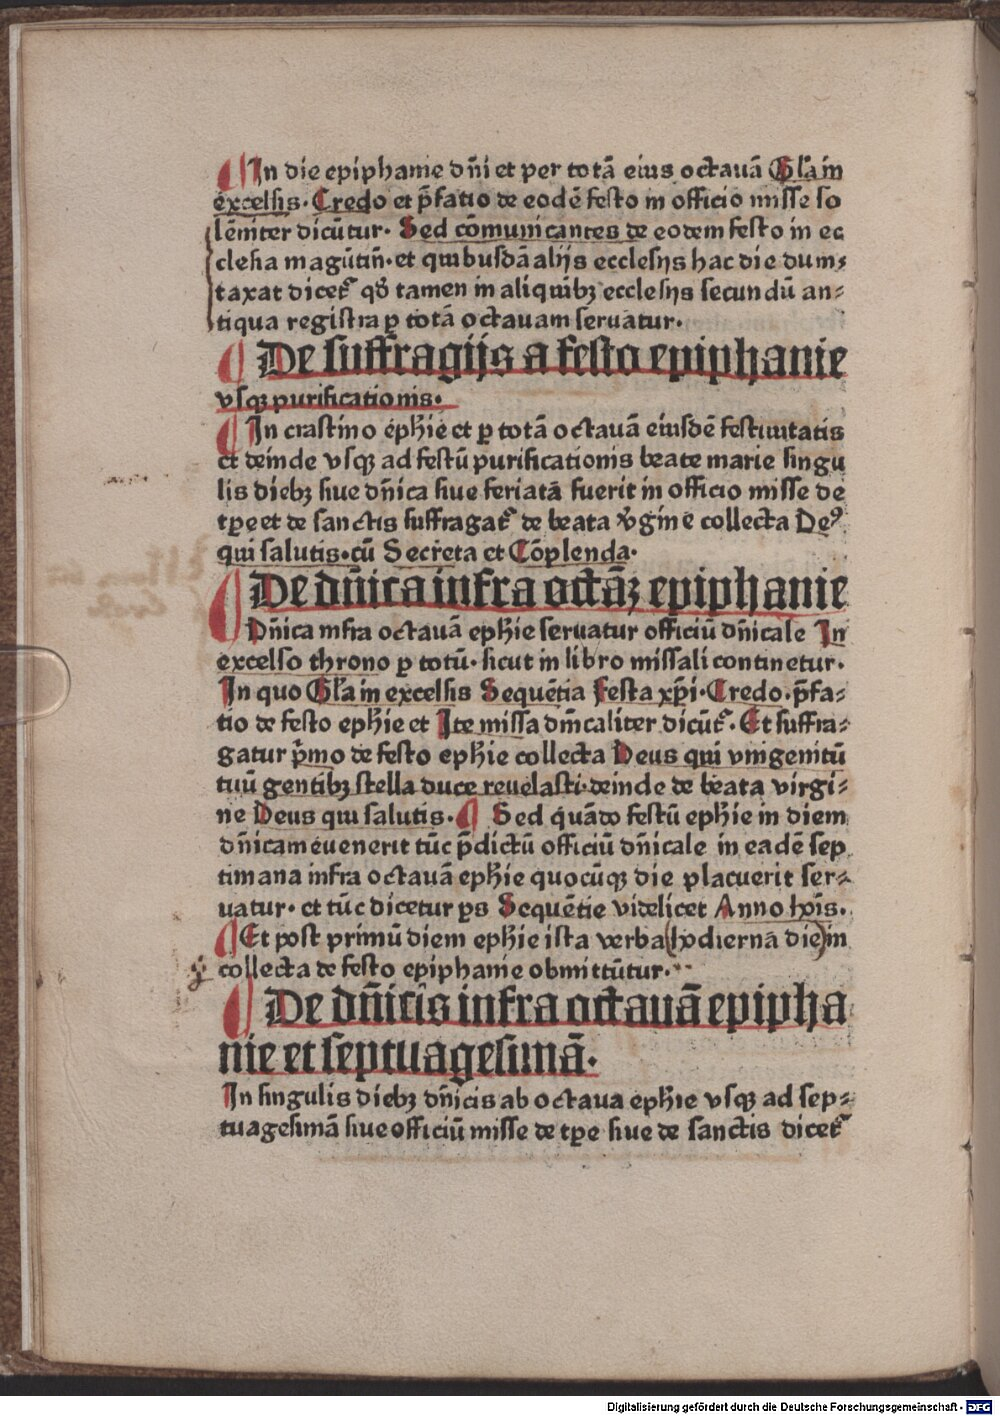 ¶ In die epiphanie dn̄i et per totā eius octauā Gl̄a in
excelsis. Credo et p̄fatio de eodē festo in officio misse so
lēniter dicūtur. Sed cōmunicantes de eodem festo in ec
clesia magūtin̄. et quibusdā alijs ecclesijs hac die dum⸗
taxat dicet᷑ qđ tamen in aliquibꝫ ecclesijs secundū an⸗
tiqua registra ꝑ totā octauam seruatur.
¶ De suffragijs a festo epiphanie
vsqꝫ purificationis.
¶ In crastino eph̄ie et ꝑ totā octauā eiusdē festiuitatis
et deinde vsqꝫ ad festū purificationis beate marie singu
lis diebꝫ siue dn̄ica siue feriata fuerit in officio misse de
tꝑe et de sanctis suffragat᷑ de beata v̄gine collecta Deꝰ
qui salutis. cū Secreta et Cōplenda.
¶ De dn̄ica infra octāꝫ epiphanie
Dn̄ica infra octauā eph̄ie seruatur officiū dn̄icale In
excelso throno ꝑ totū. sicut in libro missali continetur.
In quo Gl̄a in excelsis Sequētia Festa xp̄i. Credo. p̄fa⸗
tio de festo eph̄ie et Ite missa dn̄icaliter dicūt᷑. Et suffra⸗
gatur p̄mo de festo eph̄ie collecta Deus qui vnigenitū
tuū gentibꝫ stella duce reuelasti. deinde de beata virgi⸗
ne Deus qui salutis. ¶ Sed quādo festū eph̄ie in diem
dn̄icam euenerit tūc p̄dictū officiū dn̄icale in eadē sep
timana infra octauā eph̄ie quocūqꝫ die placuerit ser⸗
uatur. et tūc dicetur ꝓs Sequētie videlicet Anno hoīs.
¶ Et post primū diem eph̄ie ista verba (hodierna die) in
collecta de festo epiphanie obmittūtur.
¶ De dn̄icis infra octauā epipha
nie et septuagesimā.
In singulis diebꝫ dn̄icis ab octaua eph̄ie vsqꝫ ad sep⸗
tuagesimā siue officiū misse de tꝑe siue de sanctis dicet᷑
Digitalisierung gefördert durch die Deutsche Forschungsgemeinschaft - DFG